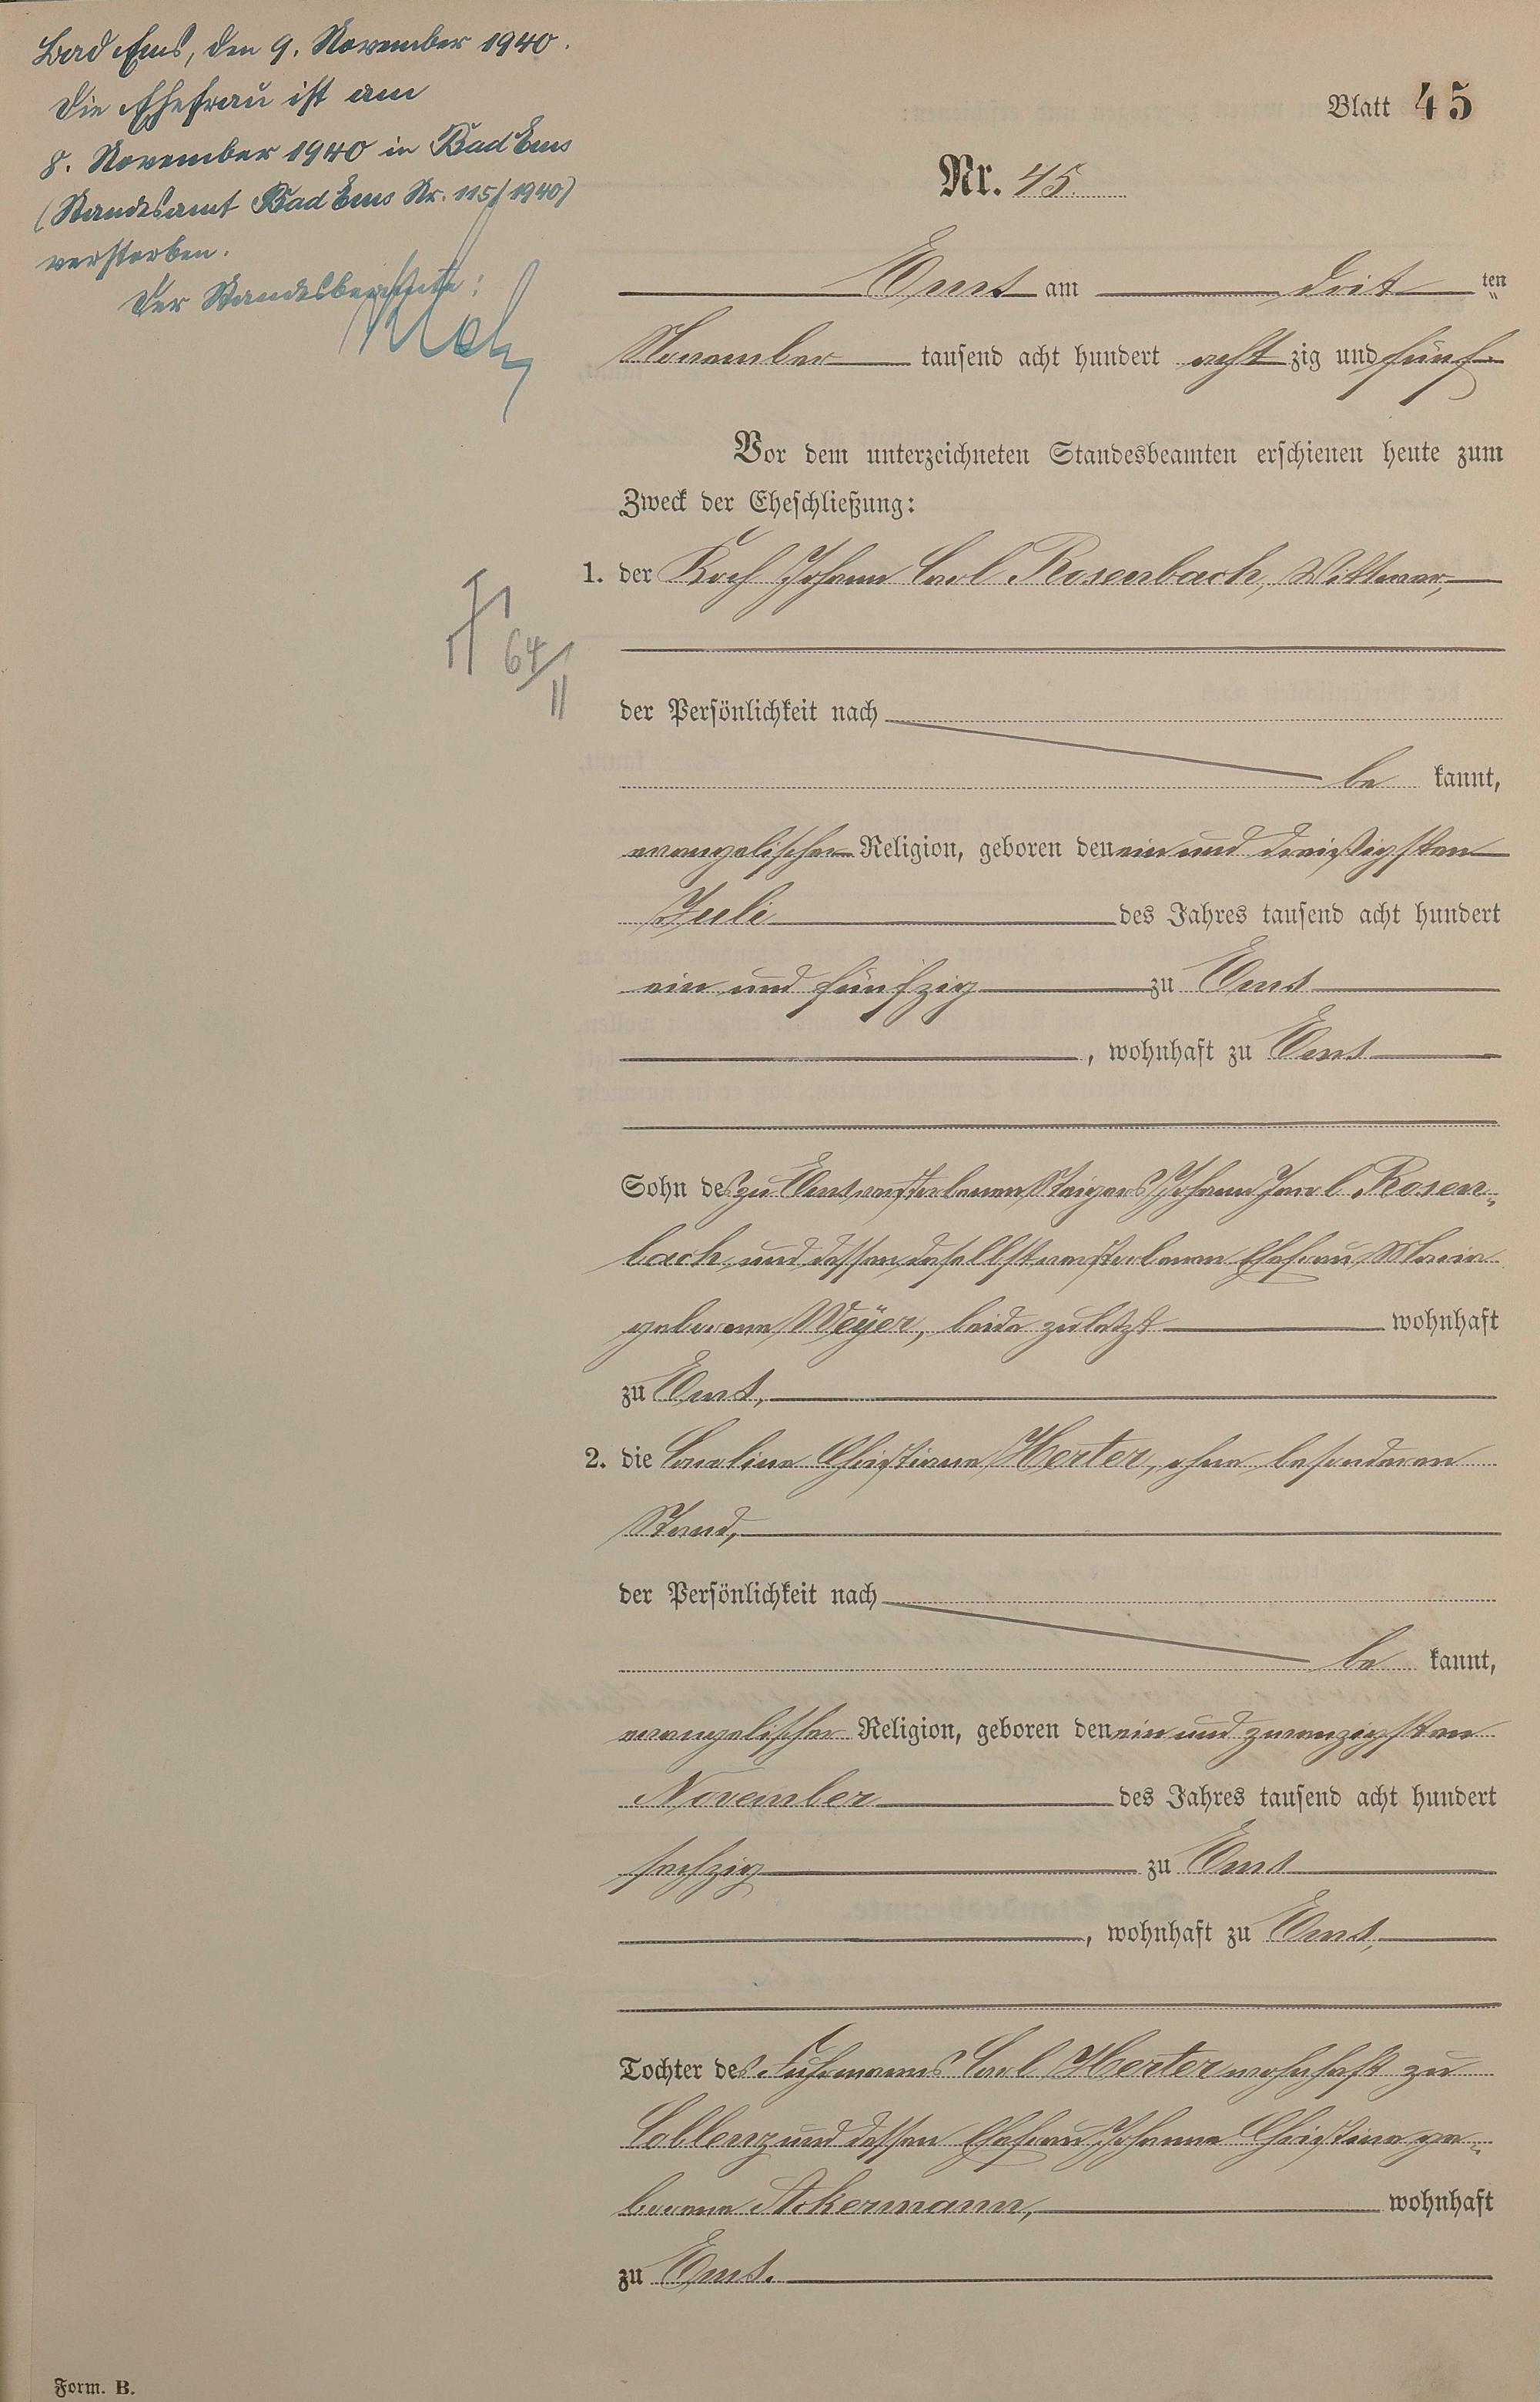 Bad Ems, den 9. November 1940.
Die Ehefrau ist am
8. November 1940 in Bad Ems
(Standesamt Bad Ems Nr. 115/1940)
verstorben.
Der Standesbeamte:
Blatt 45
Nr. 45.
Ems am dritten
November tausend acht hundert achtzig und fünf.
Vor dem unterzeichneten Standesbeamten erschienen heute zum
Zweck der Eheschließung:
1. der Koch Johann Carl Rosenbach, Wittwer,
64/II
der Persönlichkeit nach
be kannt,
evangelischer Religion, geboren den ein und dreißigsten
Juli des Jahres tausend acht hundert
ein und fünfzig zu Ems
, wohnhaft zu Ems
Sohn des zu Ems verstorbenen Steigers Johann Carl Rosen-
bach und dessen daselbst verstorbenen Ehefrau Maria
geborene Weÿer, beide zuletzt wohnhaft
zu Ems,
2. die Caroline Christiane Herter, ohne besonderen
Stand,
der Persönlichkeit nach
be kannt,
evangelischer Religion, geboren den ein und zwanzigsten
November des Jahres tausend acht hundert
sechzig zu Ems
, wohnhaft zu Ems,
Tochter des Fuhrmanns Carl Herter wohnhaft zu
Coblenz und dessen Ehefrau Johanna Christina ge-
borene Ackermann, wohnhaft
zu Ems.
Form. B.